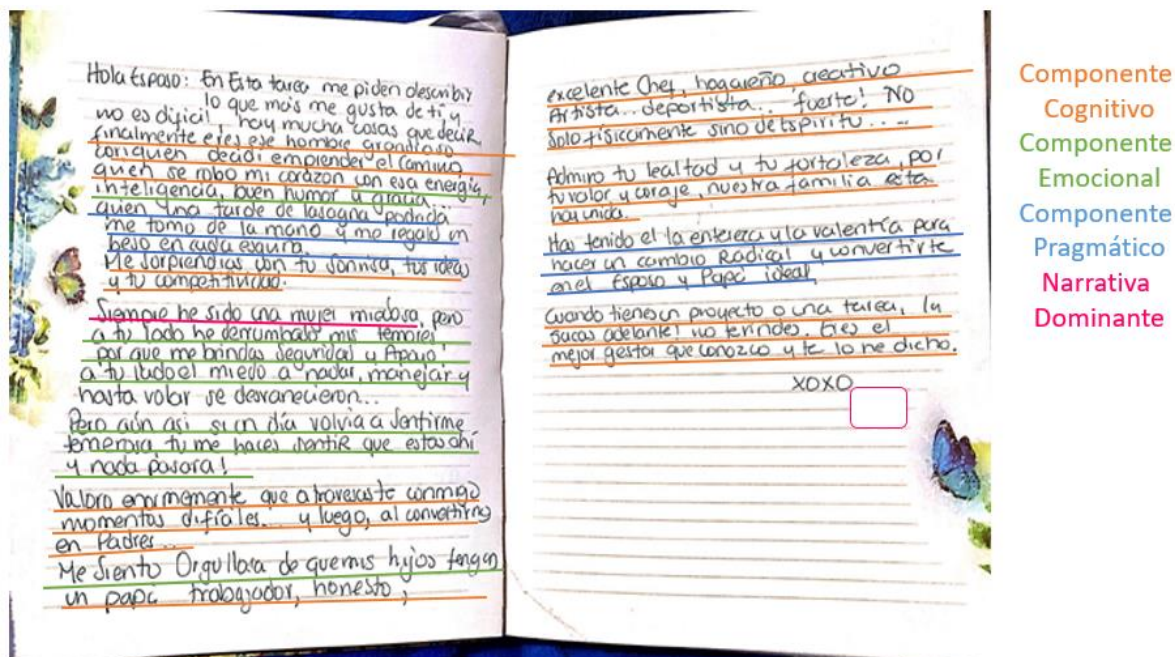 Hola Esposo: En Esta tarea me piden describir
lo que más me gusta de ti y
no es dificil! hay mucha cosas que decir,
finalmente eres ese hombre grandioso
con quien decidí emprender el camino,
quien se robo mi corazón con esa energía,
inteligencia, buen humor y gracia...
quien una tarde de lasagna
me tomo de la mano y me regalo un
beso en cada esquina.
Me sorprendias con tu sonrisa, tus ideas
y tu competitividad.
Siempre he sido una mujer miedosa, pero
a tu lado he derrumbado mis temores,
por que me brindas seguridad y Apoyo,
a tu lado el miedo a nadar, manejar y
hasta volar se desvanecieron...
Pero aún asi si un día volvia a sentirme
temerosa, tu me haces sentir que estas ahí
y nada pasara!
Valoro enormemente que atravesaste conmigo
momentos difíciles... y luego, al convertirnos
en Padres...
Me Siento Orgullosa de que mis hijos tengan
un papá trabajador, honesto,
excelente Chef, hogareño, creativo
Artista... deportista... fuerte! NO
solo físicamente sino de Espiritu....
Admiro tu lealtad y tu fortaleza, por
tu valor y coraje, nuestra familia esta
hoy unida.
Has tenido el la entereza y la valentía para
hacer un cambio Radical y convertirte
en el Esposo y Papá ideal,
Cuando tienes un proyecto o una tarea, la
sacas adelante! no te rindes. Eres el
mejor gestor que conozco y te lo he dicho.
XOXO
Componente
Cognitivo
Componente
Emocional
Componente
Pragmático
Narrativa
Dominante